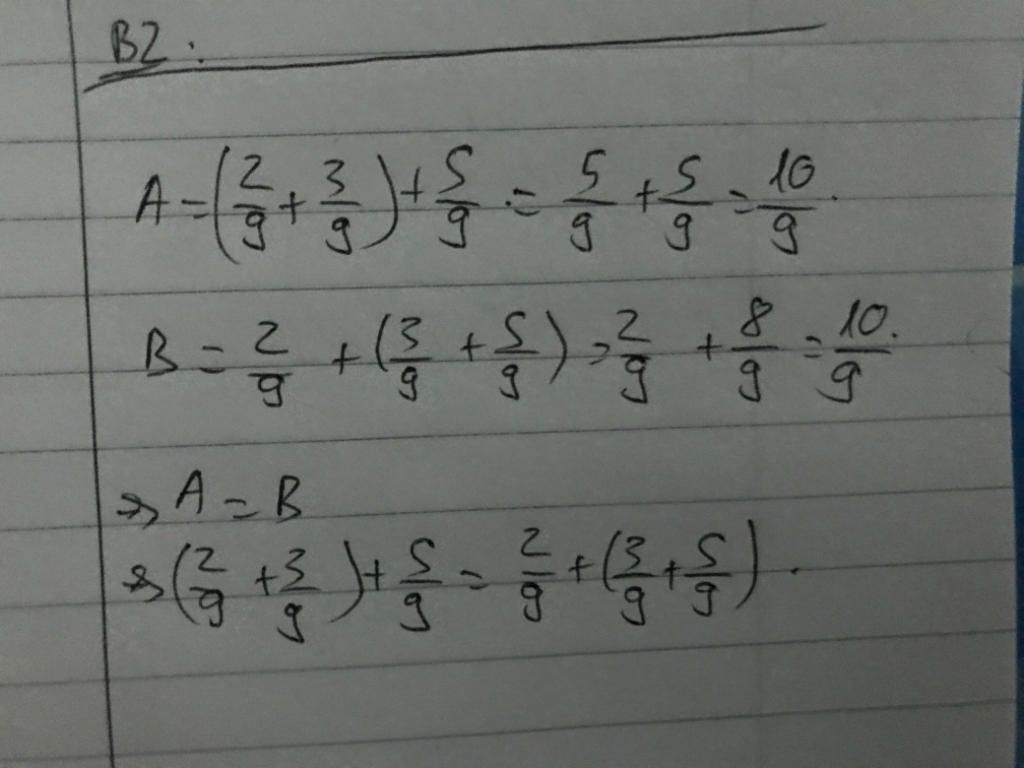 B2:
A = (2/9 + 3/9) + 5/9 = 5/9 + 5/9 = 10/9.
B = 2/9 + (3/9 + 5/9) = 2/9 + 8/9 = 10/9.
=> A = B
=> (2/9 + 3/9) + 5/9 = 2/9 + (3/9 + 5/9).